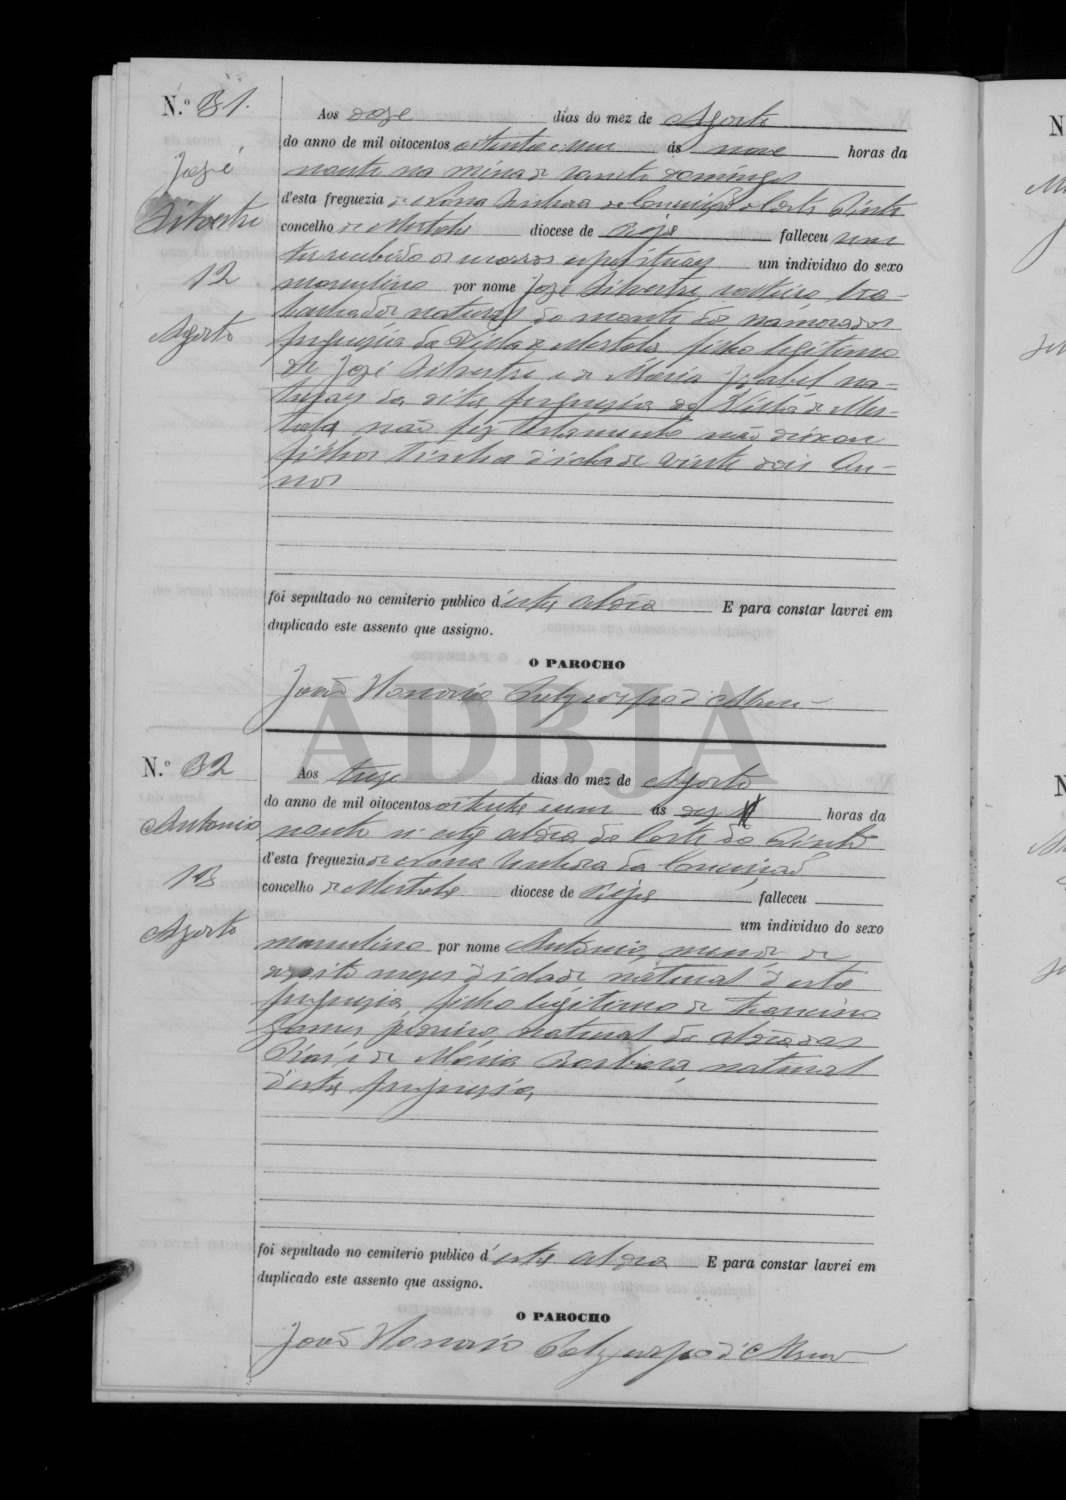 N.º 31.
José
Silvestre
12
Agosto
Aos doze dias do mez de Agosto
do anno de mil oitocentos oitenta e um ás nove horas da
noute na mina de Sancto Domingos
d'esta freguezia de Nossa Senhora da Conceição da Corte do Pinto
concelho de Mertola diocese de Beja falleceu sem
ter recebido os um individuo do sexo
masculino por nome José Silvestre, solteiro, tra-
balhador natural do monte dos Namorados
freguezia da Villa de Mertola filho legitimo
de José Silvestre e de Maria Izabel na-
turaes da dita freguezia da Villa de Mer-
tola não fez testamento não deixou
filhos tinha d'idade vinte dois an-
nos
foi sepultado no cemiterio publico d'esta aldea E para constar lavrei em
duplicado este assento que assigno.
O PAROCHO
João Honorio d'Abreu
ADBJA
N.º 32
Antonio
13
Agosto
Aos treze dias do mez de Agosto
do anno de mil oitocentos oitenta e um ás dez horas da
noute n'esta aldea da Corte do Pinto
d'esta freguezia de Nossa Senhora da Conceição
concelho de Mertola diocese de Beja falleceu
um individuo do sexo
masculino por nome Antonio, menor de
dezoito mezes d'idade natural d'esta
freguezia, filho legitimo de Francisco
Gomes natural da aldea das
e de Maria Barbara, natural
d'esta freguezia,
foi sepultado no cemiterio publico d'esta aldea E para constar lavrei em
duplicado este assento que assigno.
O PAROCHO
João Honorio d'Abreu
N
N